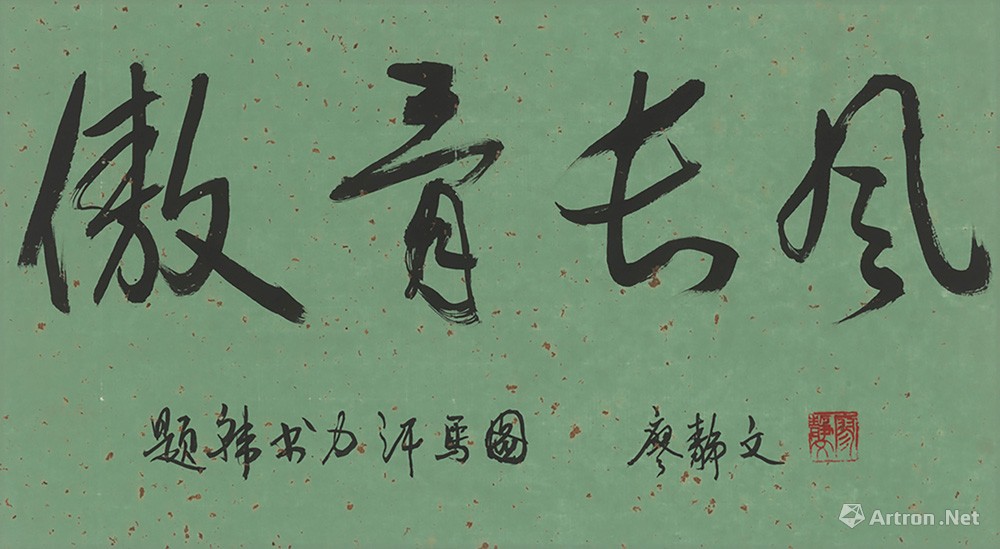 傲骨长风
题韩书力汗马图 廖静文
Artron.Net